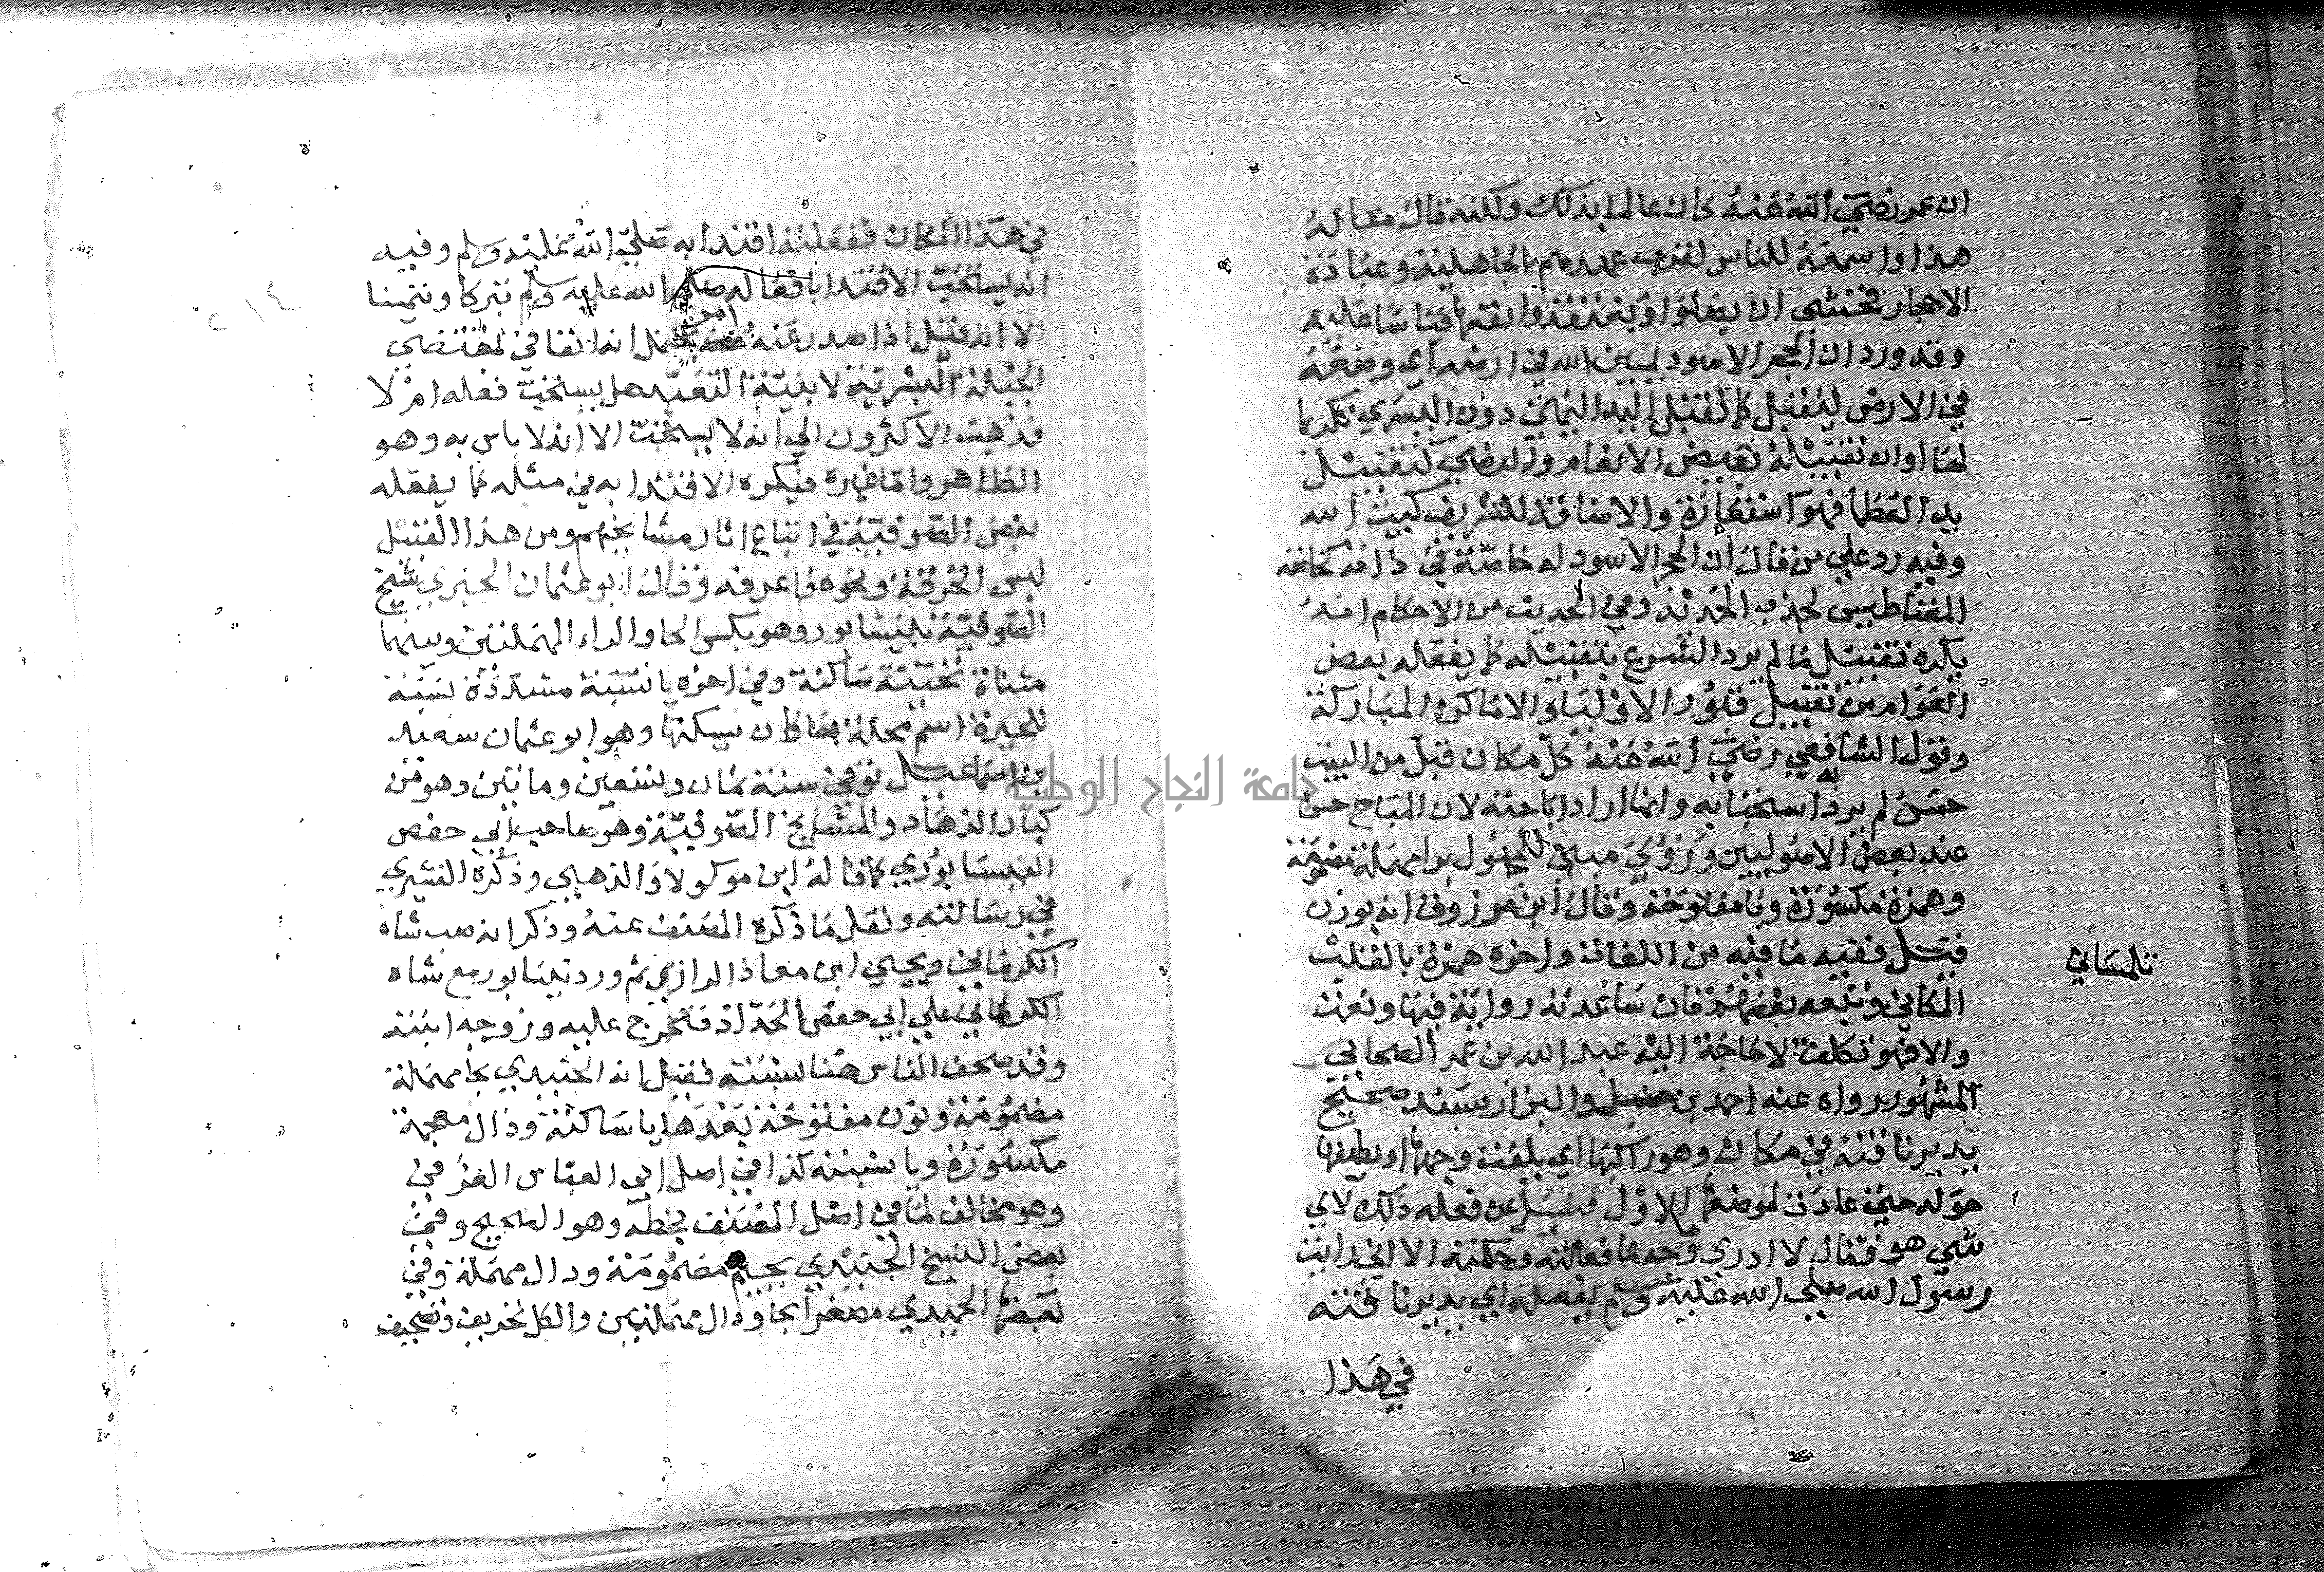 ان عمر رضي الله عنه كان عالما بذلك ولكنه قال مقاله
هذا واسمعه للناس لقرب عهدهم بالجاهلية وعبادة
الاحجار فخشي ان يضلوا او يعتقدوا نفعها قياسا عليه
وقد ورد ان الحجر الاسود يمين الله في ارضه اي وضعه
في الارض ليقبل كما تقبل اليد اليمنى دون اليسرى تكريما
لها او ان تقبيله يفيض الانعام والرضى كتقبيل
يد العظما فهو استعارة والاضافة للتشريف كبيت الله
وفيه رد على من قال ان الحجر الاسود له خاصة في ذاته كخاصة
المغناطيس لجذب الحديد وفي الحديث من الاحكام انه
يكره تقبيل ما لم يرد الشرع بتقبيله كما يفعله بعض
العوام من تقبيل قبور الاوليا والاماكن المباركة
وقول الشافعي رضي الله عنه كل مكان قبل من البيت
حسن لم يرد به استحبابه وانما اراد اباحته لان المباح حسن
عند بعض الاصوليين وروي مبني للمجهول برا مهملة مضمومة
وهمزة مكسورة ويا مفتوحة وقال ابن مرزوق انه بوزن
قيل ففيه ما فيه من اللغات واخره همزة بالقلب
المكاني وتبعه بعضهم فان ساعدته رواية فبها ونعمت
والا فهو تكلف لا حاجة اليه عبد الله بن عمر الصحابي
المشهور رواه عنه احمد بن حنبل والبزار بسند صحيح
يدير ناقته في مكان وهو راكبها اي يلفت وجهها او يطيفها
حوله حتى عادت لموضعها الاول فسيل عن فعله ذلك لاي
شي هو فقال لا ادري وجه ما فعلته وحكمته الا اني رايت
رسول الله صلى الله عليه وسلم يفعله اي يدير ناقته
في هذا
تلمساني
في هذا المكان ففعلته اقتدا به صلى الله عليه وسلم وفيه
انه يستحب الاقتدا بافعاله صلى الله عليه وسلم تبركا وتيمنا
الا انه قيل اذا صدر عنه امر انه اتفاقي لمقتضى
الجبلة البشرية لا بنية التعبد هل يستحب فعله ام لا
فذهب الاكثرون الى انه لا يستحب الا انه لا باس به وهو
الظاهر واما غيره فيكره الاقتدا به في مثله كما يفعله
بعض الصوفية في اتباع اثار مشايخهم ومن هذا القبيل
لبس الخرقة ونحوه فاعرفه وقال ابو عثمان الحيري شيخ
الصوفية بنيسابور وهو بكسر الحا والراء المهملتين وبينهما
مثناة تحتية ساكنة وفي اخره يا نسبية مشددة نسبة
للحيرة اسم محلة بها كان يسكنها وهو ابو عثمان سعيد
بن اسماعيل توفي سنة ثمان وتسعين ومائتين وهو من
كبار الزهاد والمشايخ الصوفية وهو صاحب ابي حفص
النيسابوري كما قاله ابن ماكولا والذهبي وذكره القشيري
في رسالته ونقل ما ذكره المصنف عنه وذكر انه صحب شاه
الكرماني ويحيى ابن معاذ الرازي ثم ورد نيسابور مع شاه
الكرماني على ابي حفص الحداد فتخرج عليه وزوجه ابنته
وقد صحف الناس هنا نسبته فقيل انه الجنيدي بجا مهملة
مضمومة ونون مفتوحة بعدها يا ساكنة وذال معجمة
مكسورة ويا نسبته كذا في اصل ابي العباس العزفي
وهو مخالف لما في اصل المصنف بخطه وهو الصحيح وفي
بعض النسخ الجنيدي بجيم مضمومة ودال مهملة وفي
بعضها الحميدي مصغرا بحا ودال مهملتين والكل تحريف وتصحيف
جامعة النجاح الوطنية